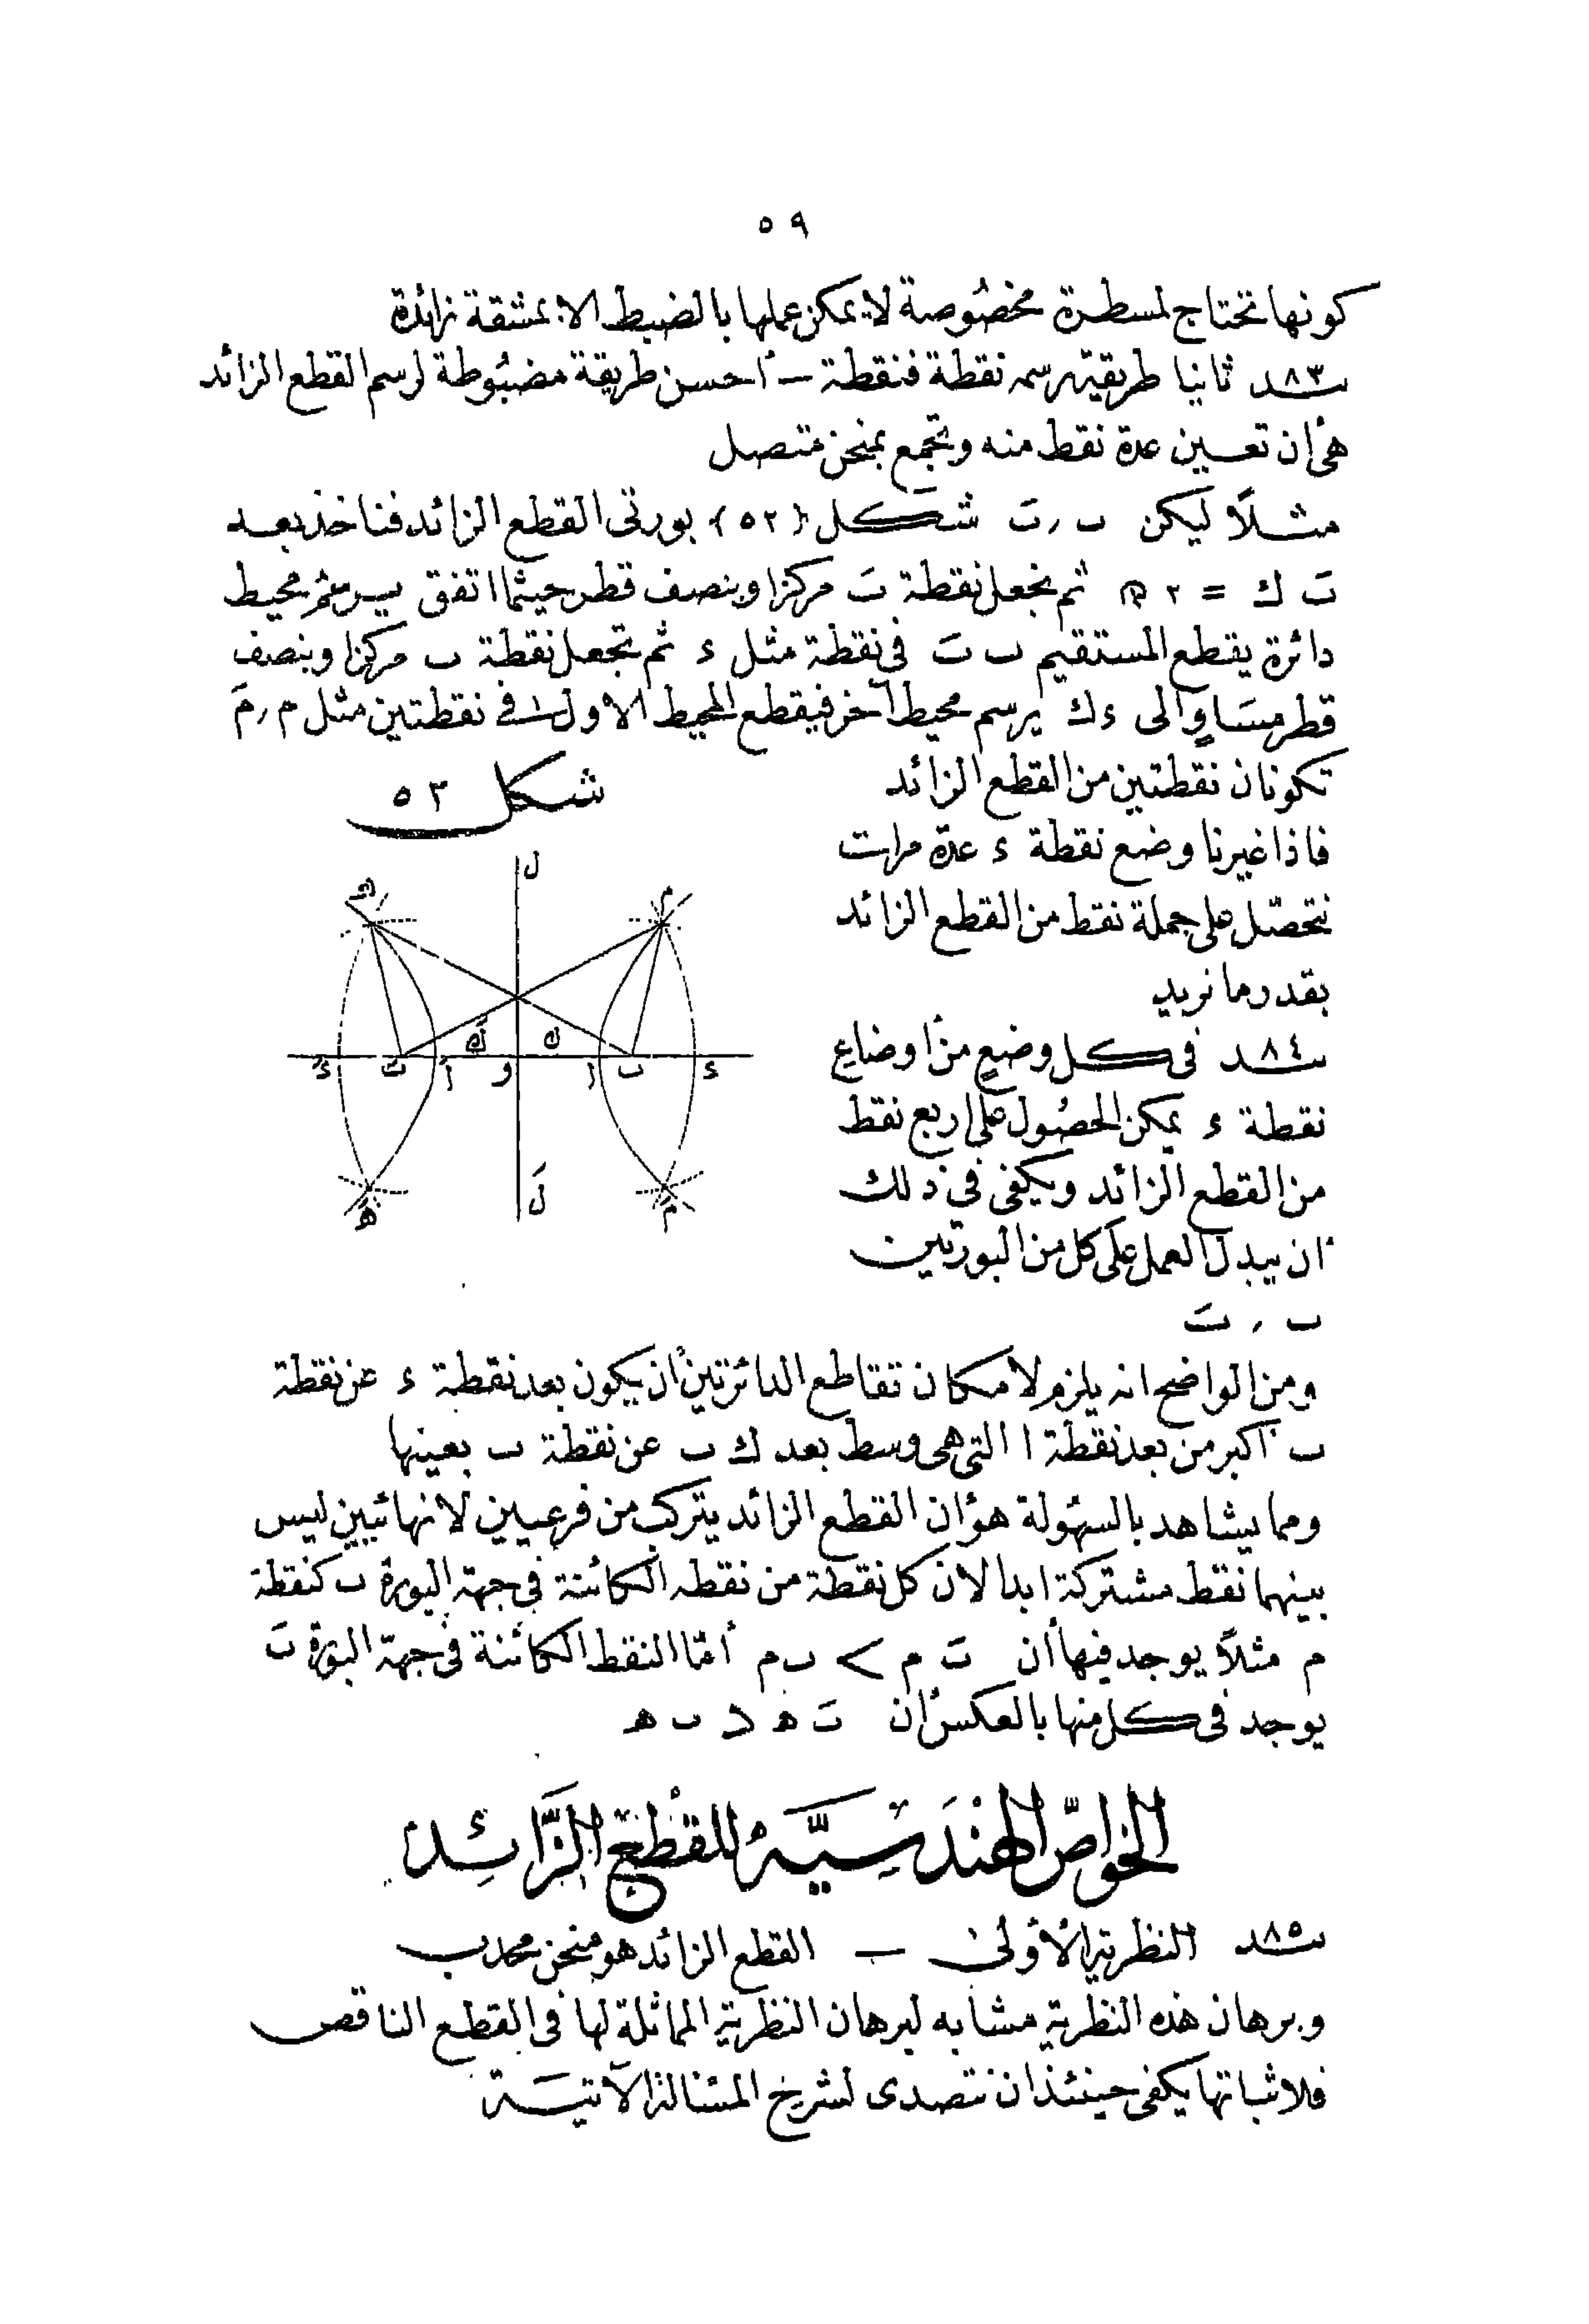 ٥٩
كونها تحتاج لمسطرة مخصوصة لا يمكن عملها بالضبط الا بمشقة زائدة
٨٣ ثانيا طريقة رسمه نقطة فنقطة — أحسن طريقة مضبوطة لرسم القطع الزائد
هى أن تعين عدة نقط منه وتجمع بمنحن متصل
مثلاً ليكن ب , بَ شكل (٥٢) بورتى القطع الزائد فناخذ بعد
بَ ك = ٢ ثم نجعل نقطة بَ مركزا وبنصف قطر حيثما اتفق يرسم محيط
دائرة يقطع المستقيم ب بَ فى نقطة مثل ء ثم تجعل نقطة ب مركزا وبنصف
قطر مساوٍ الى ء ك يرسم محيط آخر فيقطع المحيط الاول فى نقطتين مثل م , مَ
تكونان نقطتين من القطع الزائد
شكل ٥٢
فاذا غيرنا وضع نقطة ء عدة مرات
نتحصل على جملة نقط من القطع الزائد
بقدر ما نريد
٨٤ فى كل وضعٍ من أوضاع
نقطة ء يمكن الحصول على اربع نقط
من القطع الزائد ويكفى فى ذلك
ان يبدل العمل على كل من البورتين
ب , بَ
ل
م
ه
كَ
ك
ءَ
بَ
أَ
و
ا
ب
ء
لَ
هَ
مَ
ومن الواضح انه يلزم لامكان تقاطع الدائرتين أن يكون بعد نقطة ء عن نقطة
ب اكبر من بعد نقطة ا التى هى وسط بعد ك ب عن نقطة ب بعينها
ومما يشاهد بالسهولة هو أن القطع الزائد يتركب من فرعين لانهائيين ليس
بينهما نقط مشتركة ابدا لان كل نقطة من نقطه الكائنة فى جهة البورة ب كنقطة
م مثلاً يوجد فيها أن بَ م > ب م أمّا النقط الكائنة فى جهة البورة بَ
يوجد فى كل منها بالعكس أن بَ ه < ب ه
الخواصّ الهندسيّة للقطع الزّائد
٨٥ النظرية الأولى — القطع الزائد هو منحن محدب
وبرهان هذه النظرية مشابه لبرهان النظرية المماثلة لها فى القطع الناقص
فلاثباتها يكفى حينئذ ان نتصدى لشرح المسئالة الآتية